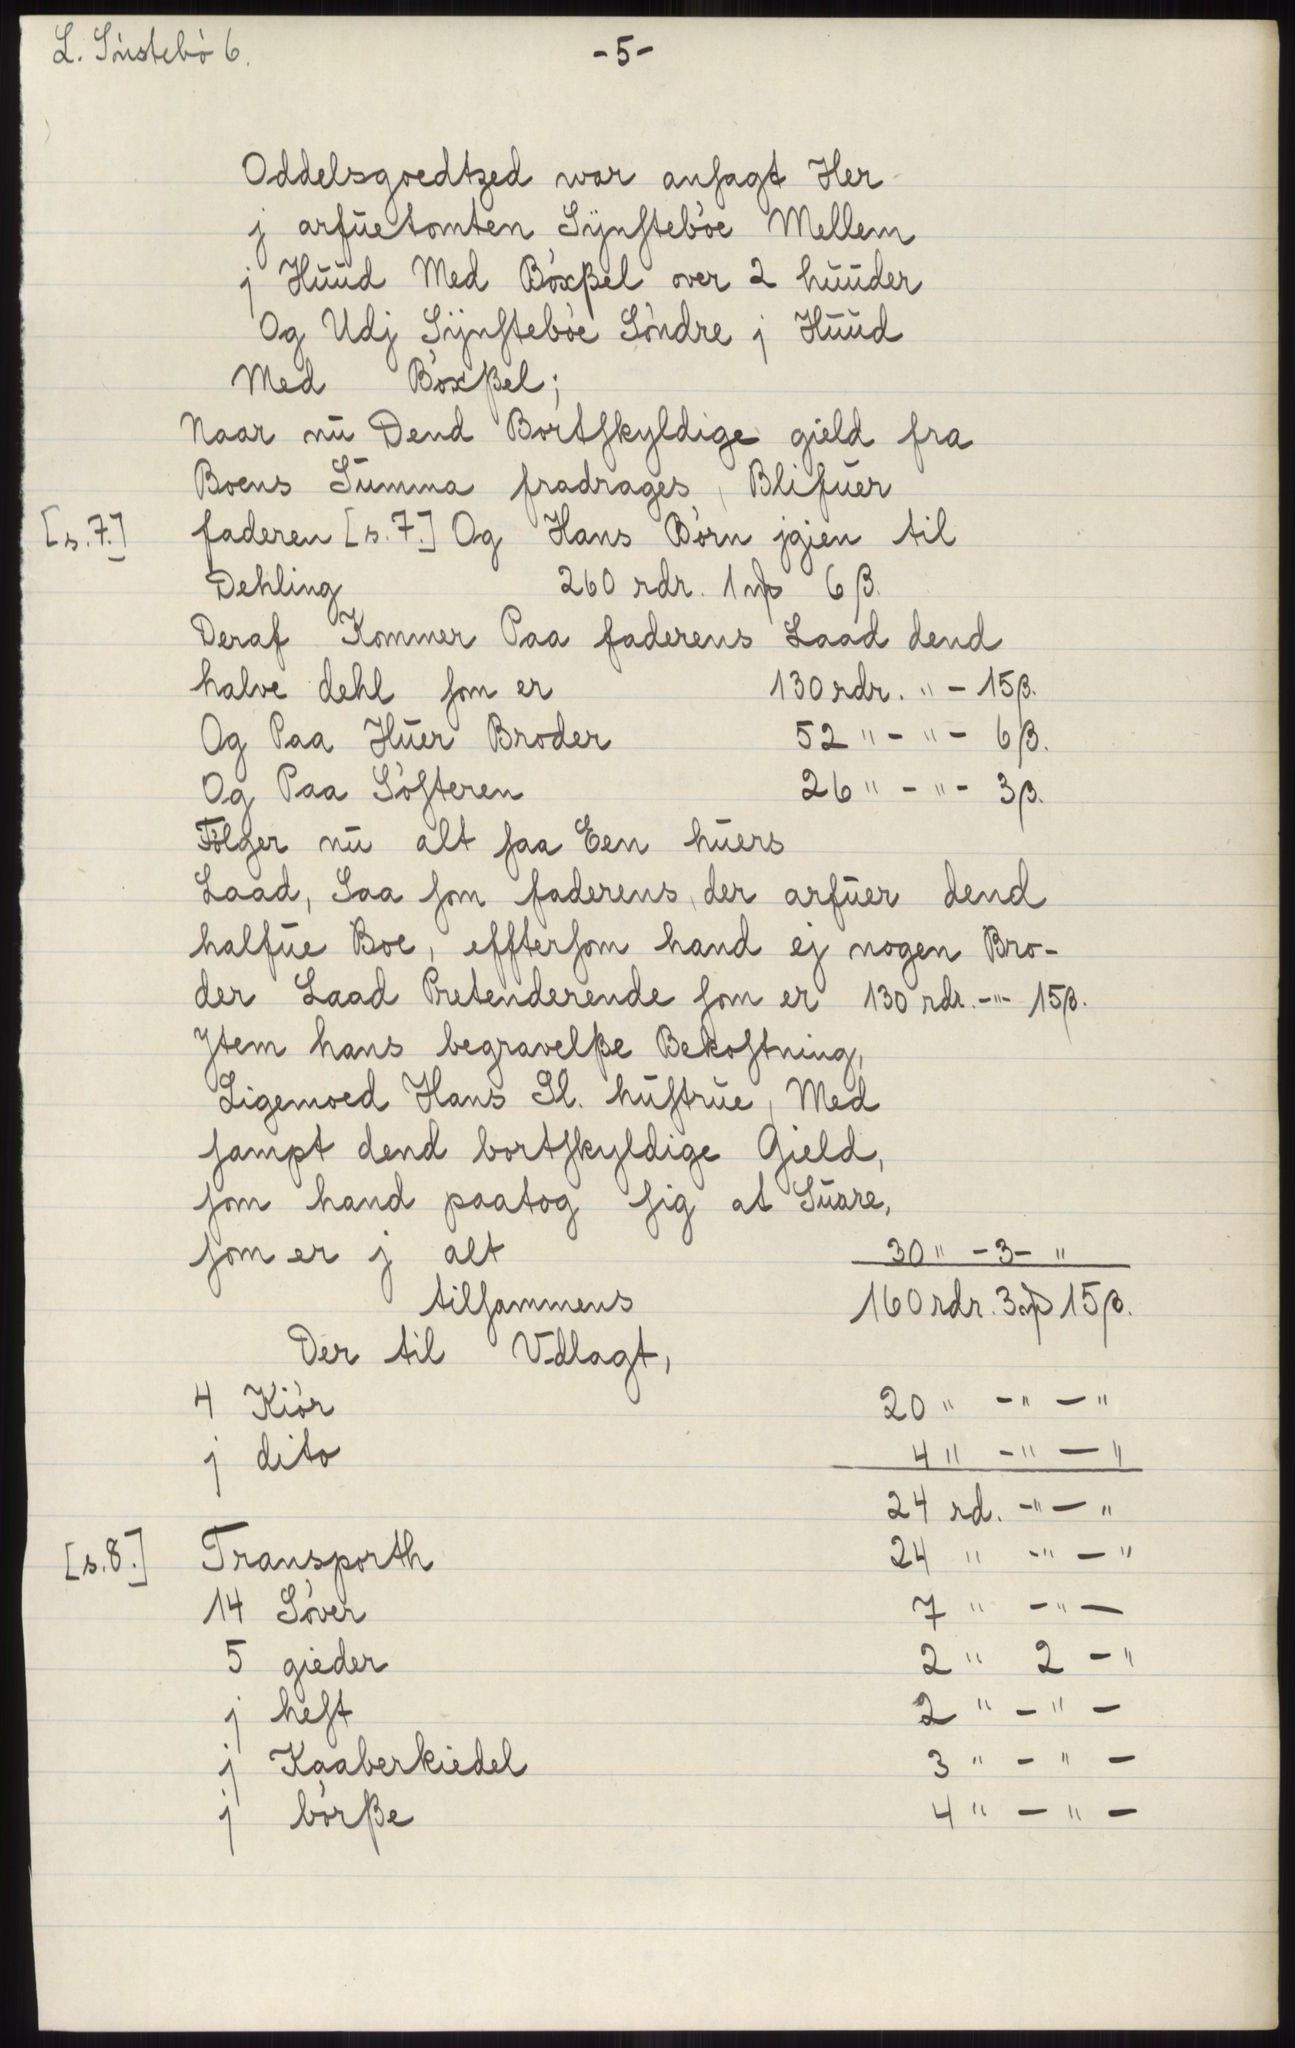 L. Sönstebö 6.
-5-
Oddelsgoedtzed war ansagt Her
j arfuetomten Sÿnstebøe Mellem
j Huud Med Böxßel over 2 huuder
Og Udj Sÿnstebøe Söndre j Huud
Med Böxßel;
Naar nu Dend Bortskyldige gield fra
Boens Summa fradrages, Blifuer
[s.7.] faderen [s.7.] Og Hans Börn jgien til
Dehling 260 rdr. 1 mk 6 β.
Deraf Kommer Paa faderens Laad dend
halve dehl som er 130 rdr. " - 15β.
Og Paa Huer Broder 52 " - " - 6β.
Og Paa Sösteren 26 " - " - 3β.
Fölger nu alt saa Een huers
Laad, Saa som faderens, der arfuer dend
halfue Boe, efftersom hand ej nogen Bro-
der Laad Pretenderende som er 130 rdr. -"- 15β.
Jtem hans begravelße Bekostning,
Ligemoed Hans Sl. hustrue, Med
sampt dend bortskyldige Gield,
som hand paatog sig at Suare,
som er j alt 30 " - 3 - "
tilsammens 160 rdr. 3 mk 15β.
Der til Vdlagt,
4 Kiör 20 " - " - "
j dito 4 " - " - "
24 rd. - " - "
[s.8.] Transporth 24 " - " - "
14 Söver 7 " - " -
5 gieder 2 " 2 - "
j hest 2 " - " -
j Kaaberkiedel 3 " - " -
j börße 4 " - " -